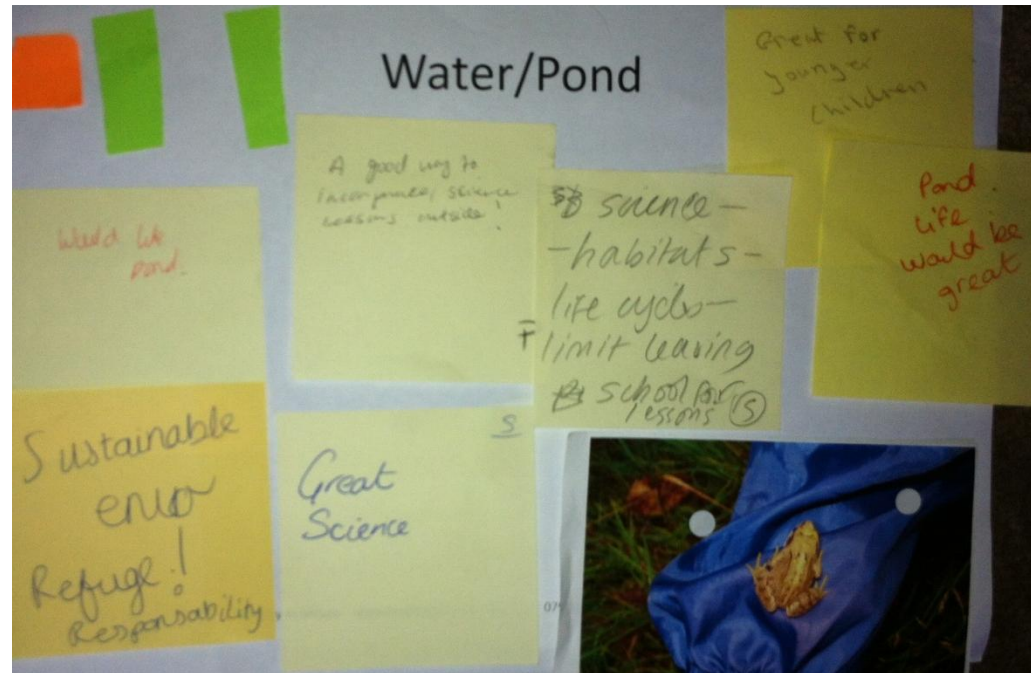 Water/Pond
Great for
younger
children
A good way to
incorporate science
lessons outside!
Would like
pond.
science -
- habitats -
life cycles -
limit leaving
school for
lessons S
Pond
life
would be
great
Sustainable
enviro
Refuge!
Responsability
S
Great
Science